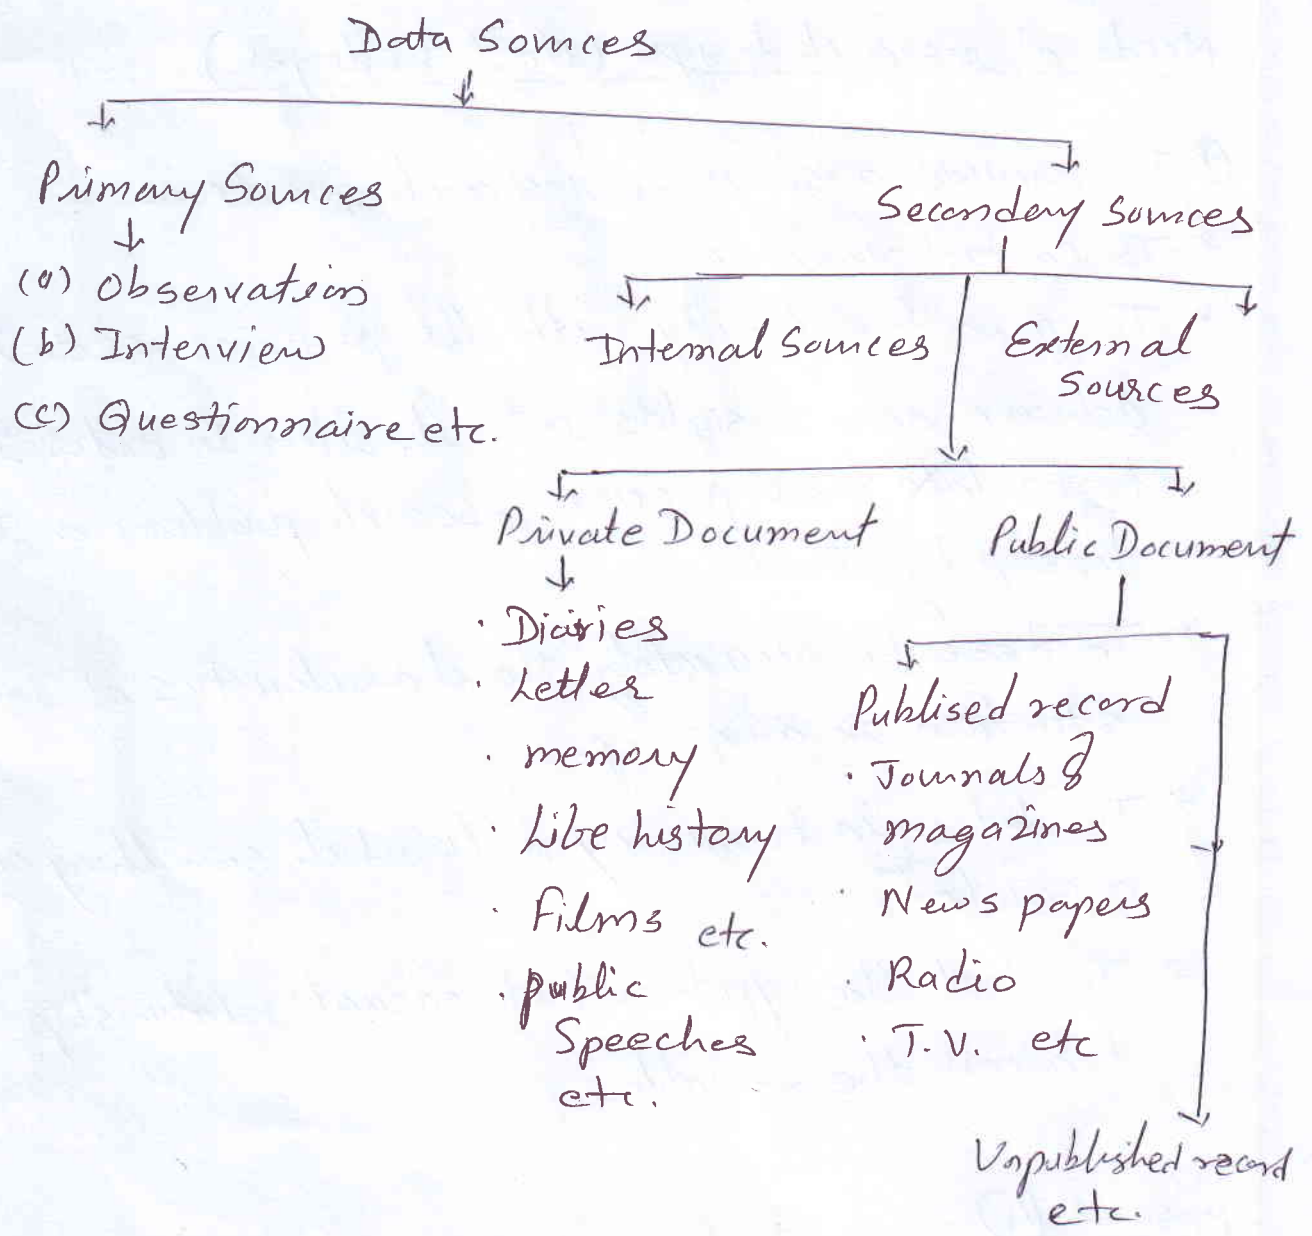 Data Sources
Primary Sources
(a) Observation
(b) Interview
(c) Questionnaire etc.
Secondary Sources
Internal Sources
External
Sources
Private Document
• Diaries
• Letter
• memory
• Life history
• Films etc.
• public
Speeches
etc.
Public Document
Publised record
• Journals &
magazines
• News papers
• Radio
• T.V. etc
Unpublished record
etc.